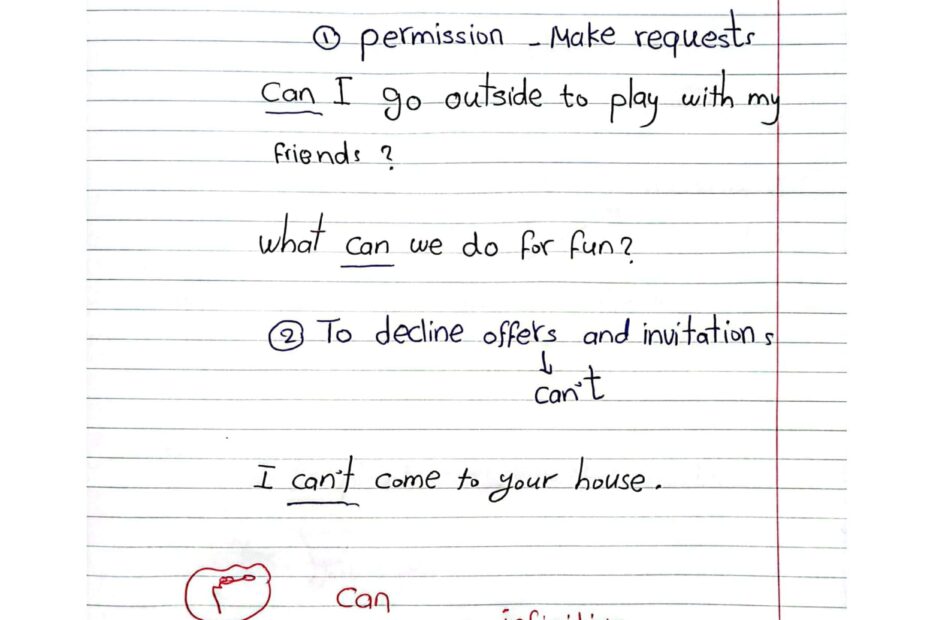 ① permission - Make requests
Can I go outside to play with my
friends ?
What can we do for fun?
② To decline offers and invitations
↓
can't
I can't come to your house.
Can